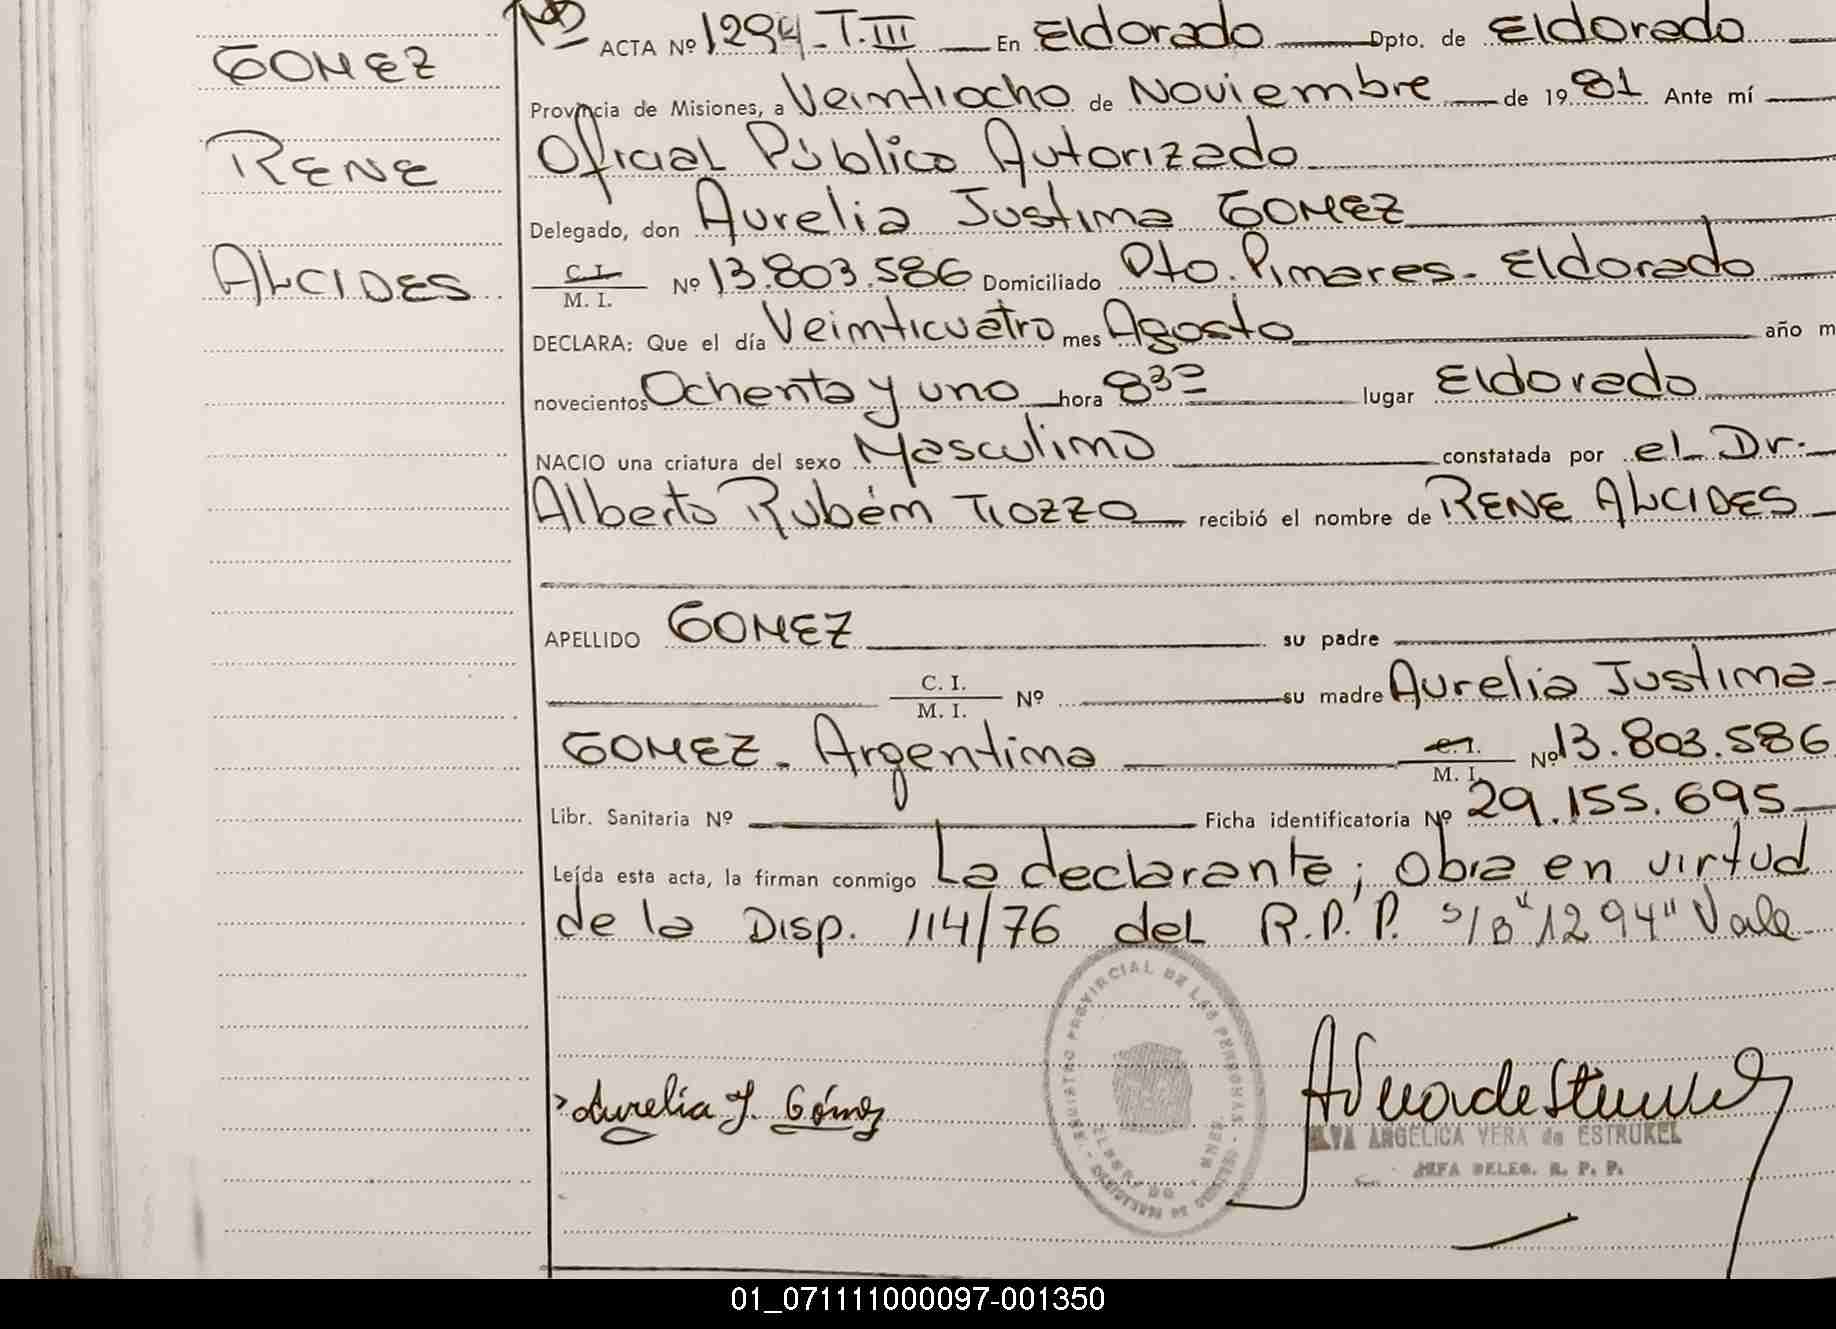 GOMEZ
RENE
ALCIDES
Nº ACTA Nº 1294-T.III En Eldorado Dpto. de Eldorado
Provincia de Misiones, a Veintiocho de Noviembre de 19 81 Ante mí
Oficial Público Autorizado
Delegado, don Aurelia Justina GOMEZ
C. I.
M. I. Nº 13.803.586 Domiciliado Pto. Pinares - Eldorado
DECLARA: Que el día Veinticuatro mes Agosto año m
novecientos Ochenta y uno hora 8 30 lugar Eldorado
NACIO una criatura del sexo Masculino constatada por el Dr.
Alberto Rubén Tiozzo recibió el nombre de RENE ALCIDES
APELLIDO GOMEZ su padre
C. I.
M. I. Nº su madre Aurelia Justina
GOMEZ - Argentina C. I.
M. I. Nº 13.803.586
Libr. Sanitaria Nº Ficha identificatoria Nº 29.155.695
Leída esta acta, la firman conmigo La declarante; Obra en virtud
de la Disp. 114/76 del R.P.P. s/B "1294" Vale
REGISTRO PROVINCIAL DE LAS PERSONAS
Aurelia J. Gómez
ELVA ANGELICA VERA de ESTRUKEL
JEFA DELEG. R. P. P.
01_071111000097-001350